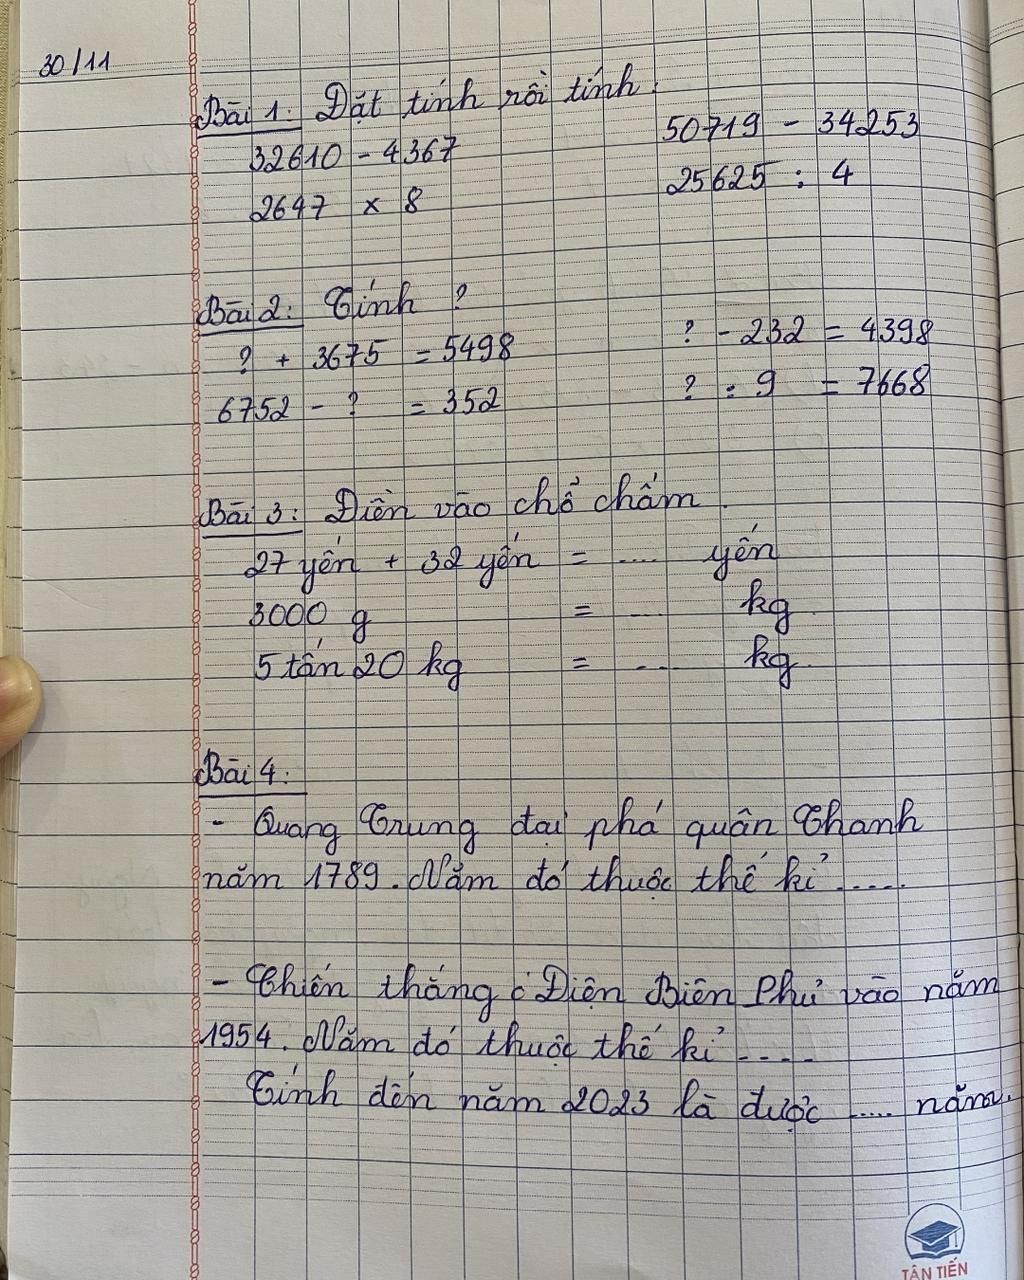 30/11
Bài 1: Đặt tính rồi tính:
32610 - 4367 50719 - 34253
2647 x 8 25625 : 4
Bài 2: Tính ?
? + 3675 = 5498 ? - 232 = 4398
6752 - ? = 352 ? : 9 = 7668
Bài 3: Điền vào chổ chấm.
27 yến + 32 yến = .... yến
3000 g = .... kg
5 tấn 20 kg = .... kg
Bài 4:
- Quang Trung đại phá quân Thanh
năm 1789. Năm đó thuộc thế kỉ .....
- Chiến thắng Điện Biên Phủ vào năm
1954. Năm đó thuộc thế kỉ ....
Tính đến năm 2023 là được .... năm.
TÂN TIẾN